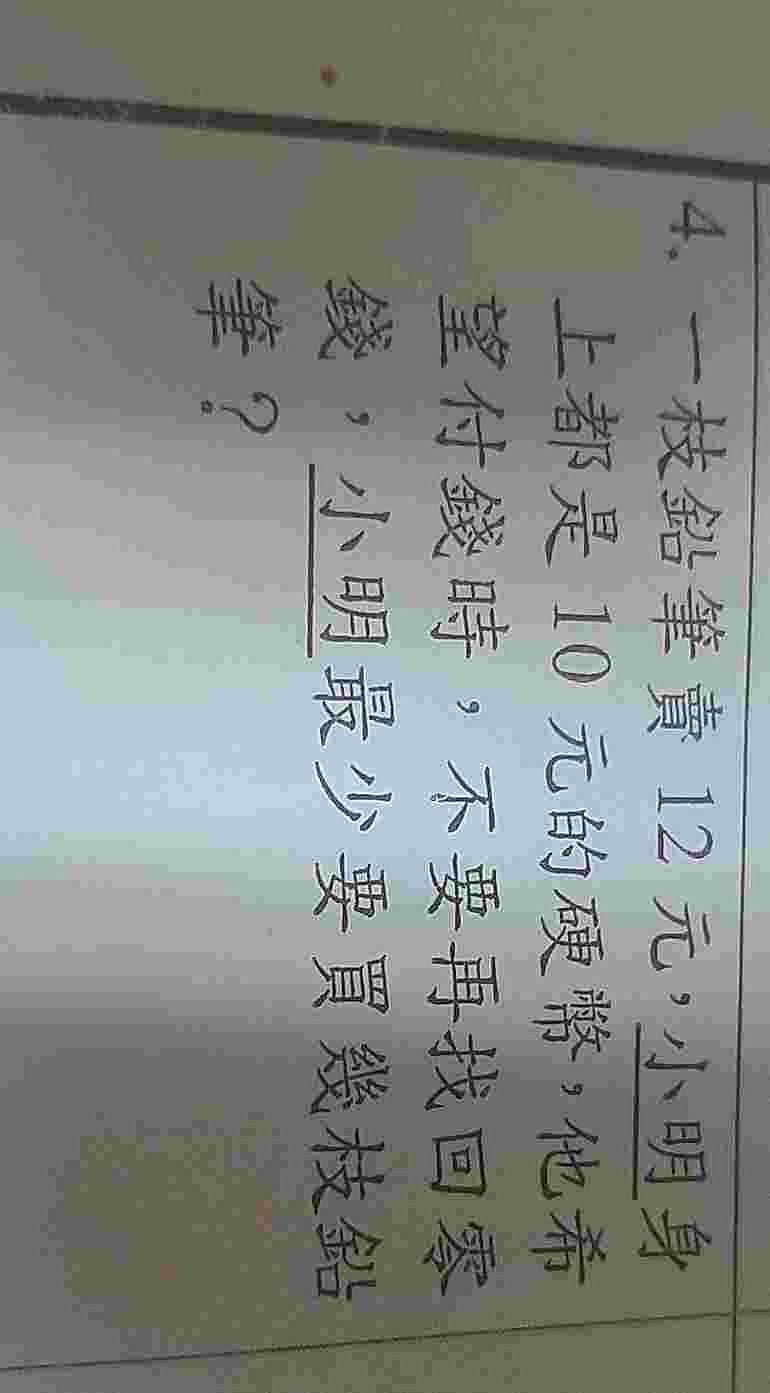 4. 一枝鉛筆賣 12 元，小明身
上都是 10 元的硬幣，他希
望付錢時，不要再找回零
錢，小明最少要買幾枝鉛
筆？